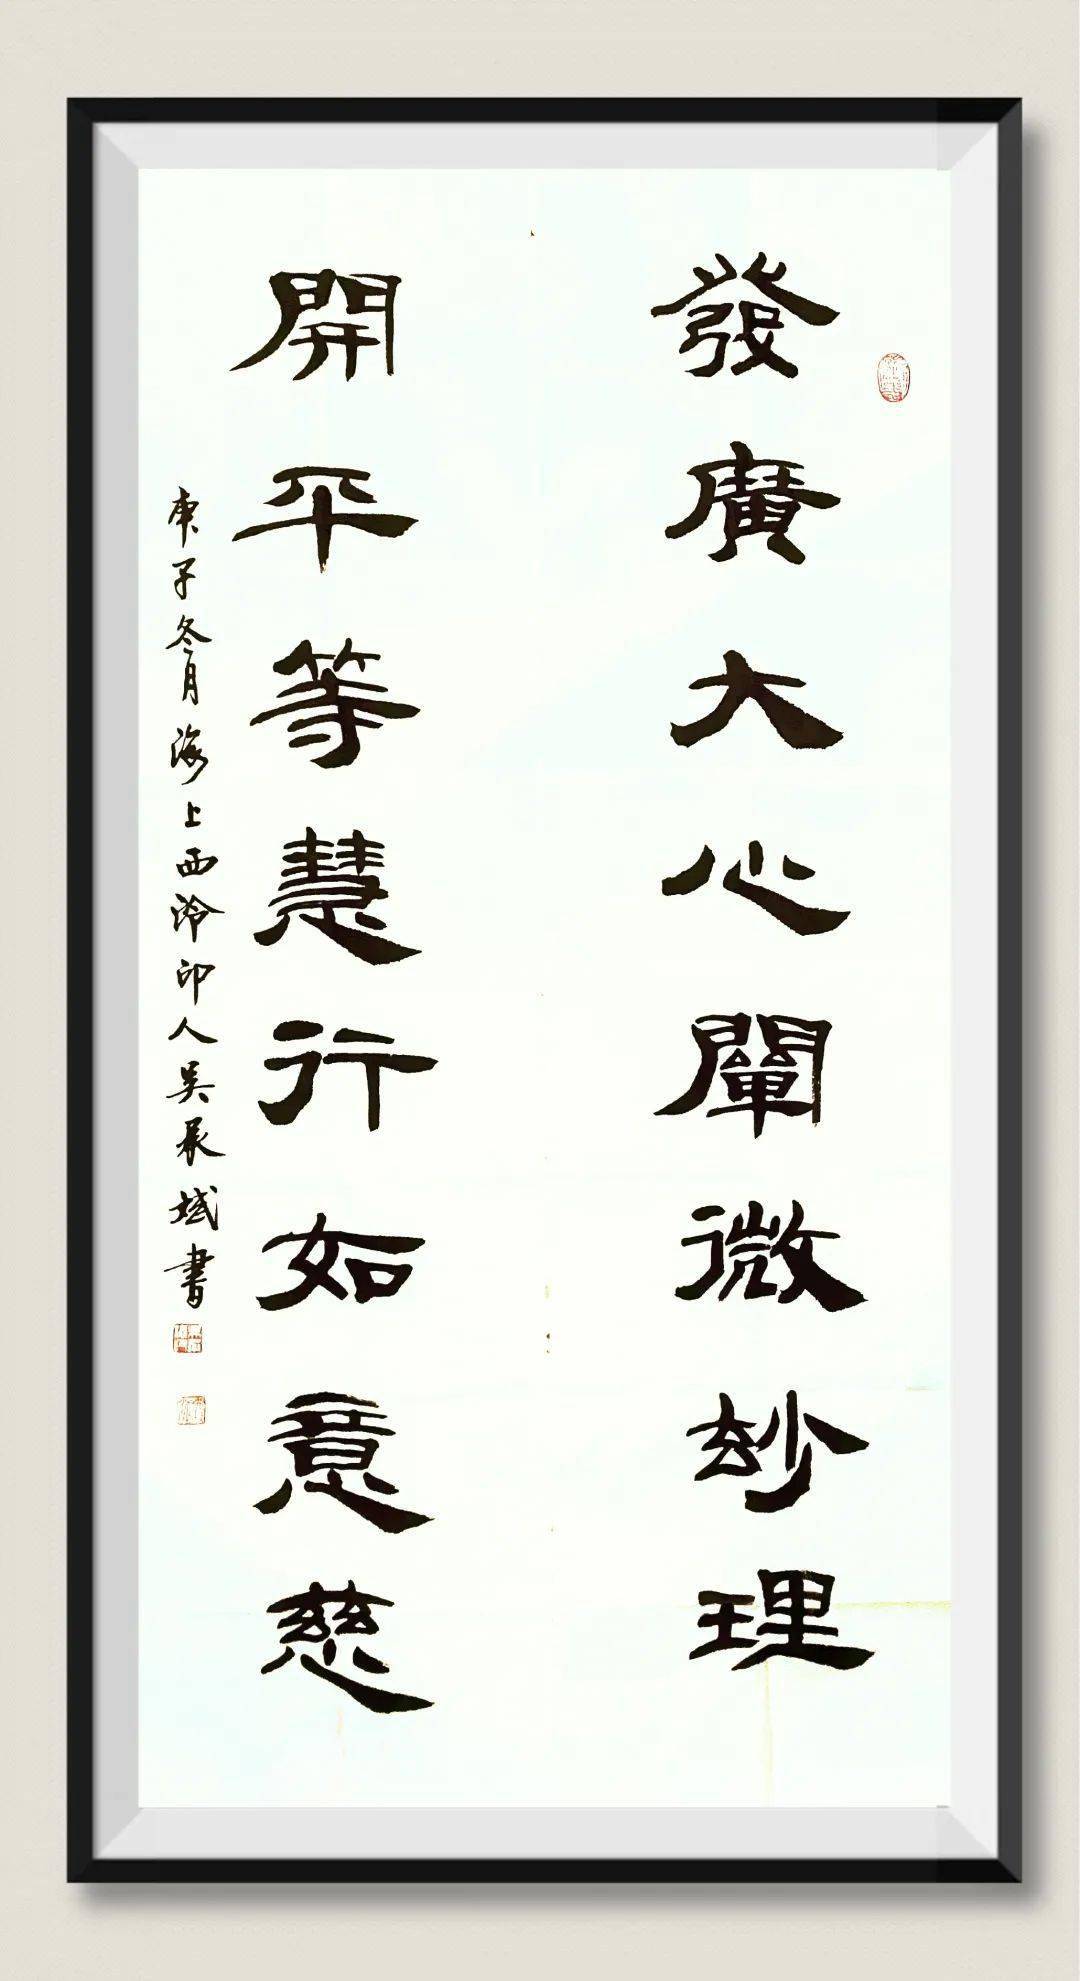 發廣大心闡微玅理
開平等慧行如意慈
庚子冬月海上西泠印人吳承斌書